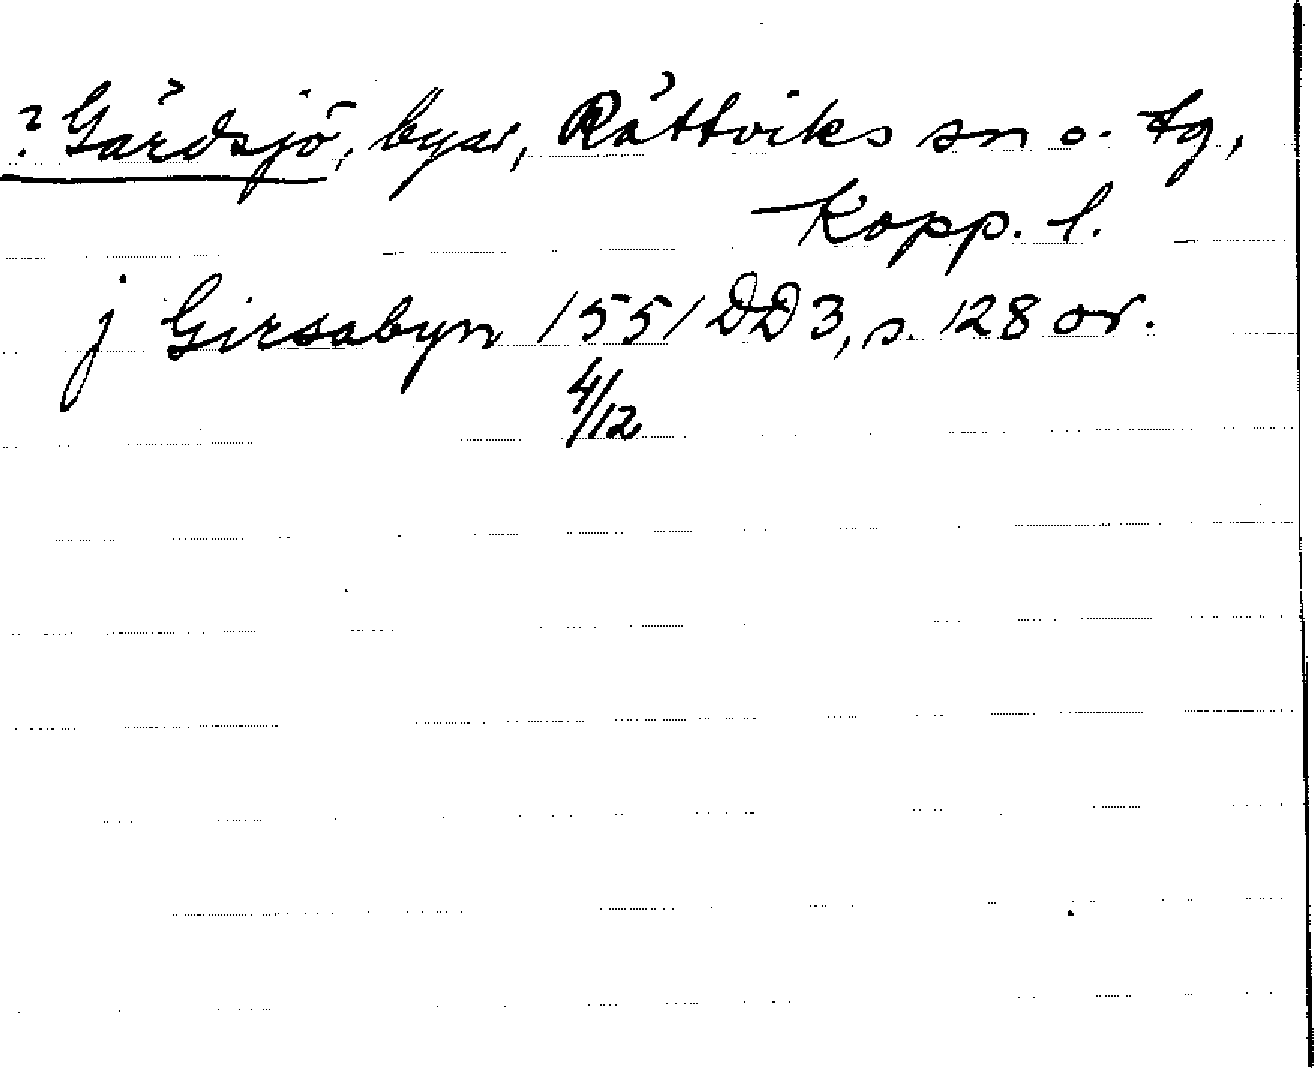 ? Gärdsjö, byar, Rättviks sn o. tg,
Kopp. l.
j Girsabyn 1551 DD 3, s. 128 or.
4/12